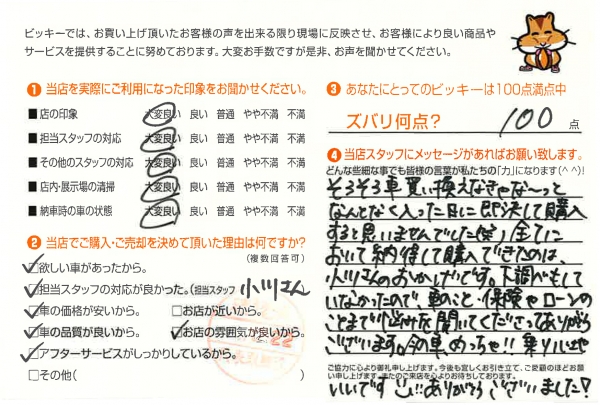 ビッキーでは、お買い上げ頂いたお客様の声を出来る限り現場に反映させ、お客様により良い商品や
サービスを提供することに努めております。大変お手数ですが是非、お声を聞かせてください。
1 当店を実際にご利用になった印象をお聞かせください。
■店の印象 大変良い 良い 普通 やや不満 不満
■担当スタッフの対応 大変良い 良い 普通 やや不満 不満
■その他のスタッフの対応 大変良い 良い 普通 やや不満 不満
■店内・展示場の清掃 大変良い 良い 普通 やや不満 不満
■納車時の車の状態 大変良い 良い 普通 やや不満 不満
2 当店でご購入・ご売却を決めて頂いた理由は何ですか?
(複数回答可)
□欲しい車があったから。
□担当スタッフの対応が良かった。(担当スタッフ 小川さん )
□車の価格が安いから。 □お店が近いから。
□車の品質が良いから。 □お店の雰囲気が良いから。
□アフターサービスがしっかりしているから。
□その他( )
3 あなたにとってのビッキーは100点満点中
ズバリ何点? 100 点
4 当店スタッフにメッセージがあればお願い致します。
どんな些細な事でも皆様の言葉が私たちの「力」になります(^ ^)!
そろそろ車買い換えなきゃな〜っと
なんとなく入った日に即決して購入
すると思いませんでした(笑)全てに
おいて納得して購入できたのは、
小川さんのおかげです。下調べもして
いなかったので車のこと・保険やローンの
ことまで悩みを聞いてくださってありがとう
ございます。今の車、めっちゃ!!乗り心地
ご協力に心より御礼申し上げます。今後も宜しくお引き立て、ご愛顧のほどお願い
申し上げます。またのご来店を心よりお待ちしております。
いいです!!ありがとうございました!